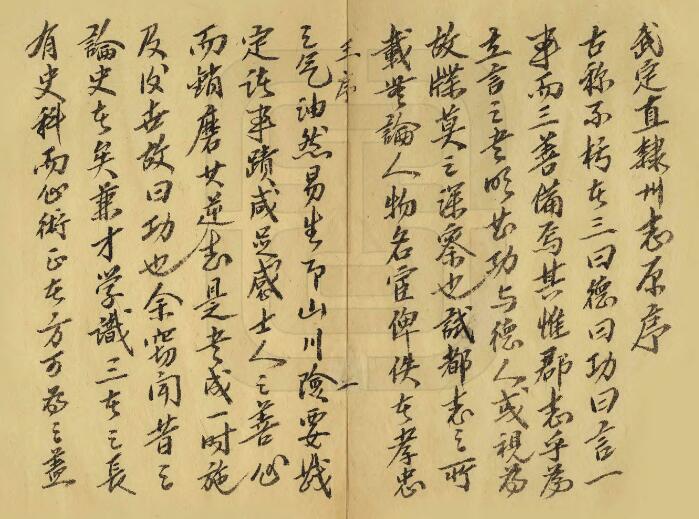 武定直隸州志原序
古称不朽在三曰德曰功曰言一
事而三善備焉其惟郡志乎為
立言之者明甚功与德人或視為
故牒莫之深察也試都志之所
載無論人物名宦俾佚在孝忠
王序
一
之气油然易生即山川險要戡
定談事蹟咸足感士人之善心
而銷磨其逆志是者成一时施
及後世故曰功也余窃闻昔之
論史在矣兼才学識三在之長
有史科而心術正在方可為之盖